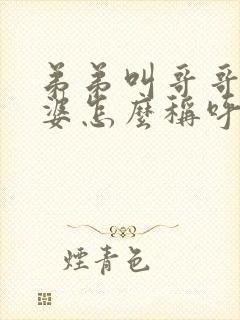 弟弟叫哥哥
婆怎麼稱呼
煙青色